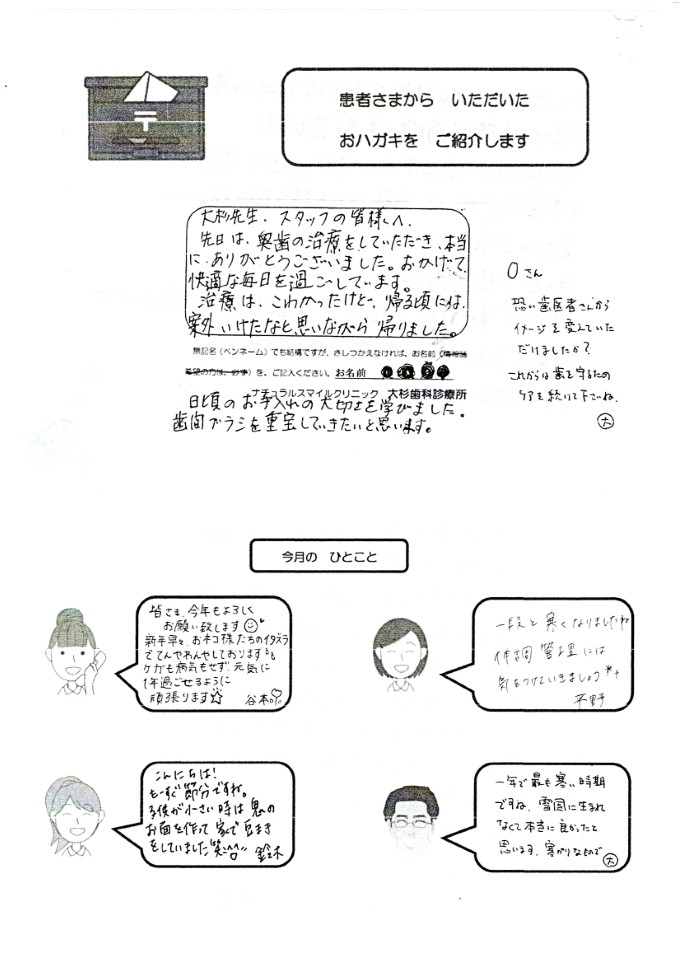 患者さまから いただいた
おハガキを ご紹介します
大杉先生、スタッフの皆様へ、
先日は、奥歯の治療をしていただき、本当
に、ありがとうございました。おかげで
快適な毎日を過ごしています。
治療は、こわかったけど、帰る頃には、
案外いけたなと思いながら帰りました。
無記名（ペンネーム）でも結構ですが、さしつかえなければ、お名前
を、ご記入ください。お名前
ナチュラルスマイルクリニック 大杉歯科診療所
日頃のお手入れの大切さを学びました。
歯間ブラシを重宝していきたいと思います。
Oさん
恐い歯医者さんから
イメージを変えていた
だけましたか？
これからは歯を守るための
ケアを続けて下さいね。
大
今月の ひとこと
皆さま、今年もよろしく
お願い致します
新年早々 おネコ様たちのイタズラ
でてんやわんやしております
ケガも病気もせず、元気に
1年過ごせるように
頑張ります☆ 谷本
一段と寒くなりましたね
体調管理には
気をつけていきましょう
平野
こんにちは！
もうすぐ節分ですね。
子供が小さい時は鬼の
お面を作って家で豆まき
をしていました 鈴木
一年で最も寒い時期
ですね、雪国に生まれ
なくて本当に良かったと
思います、寒がりなもので
大